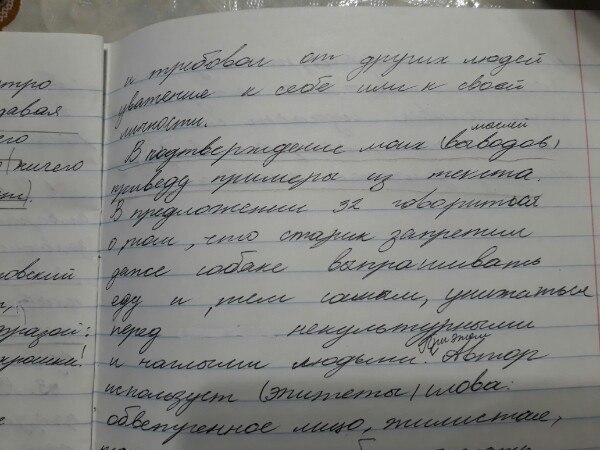 и требовал от других людей
уважение к себе или к своей
личности.
мыслей
В подтверждение моих (выводов)
приведу примеры из текста.
В предложении 32 говориться
о том, что старик запретил
даже собаке выпрашивать
еду и, тем самым, унижаться
перед некультурными
и наглыми людьми. При этом Автор
использует (эпитеты) слова:
обветренное лицо, жилистые,
тро
давая
его
ничего
овский
фразой:
крошки!